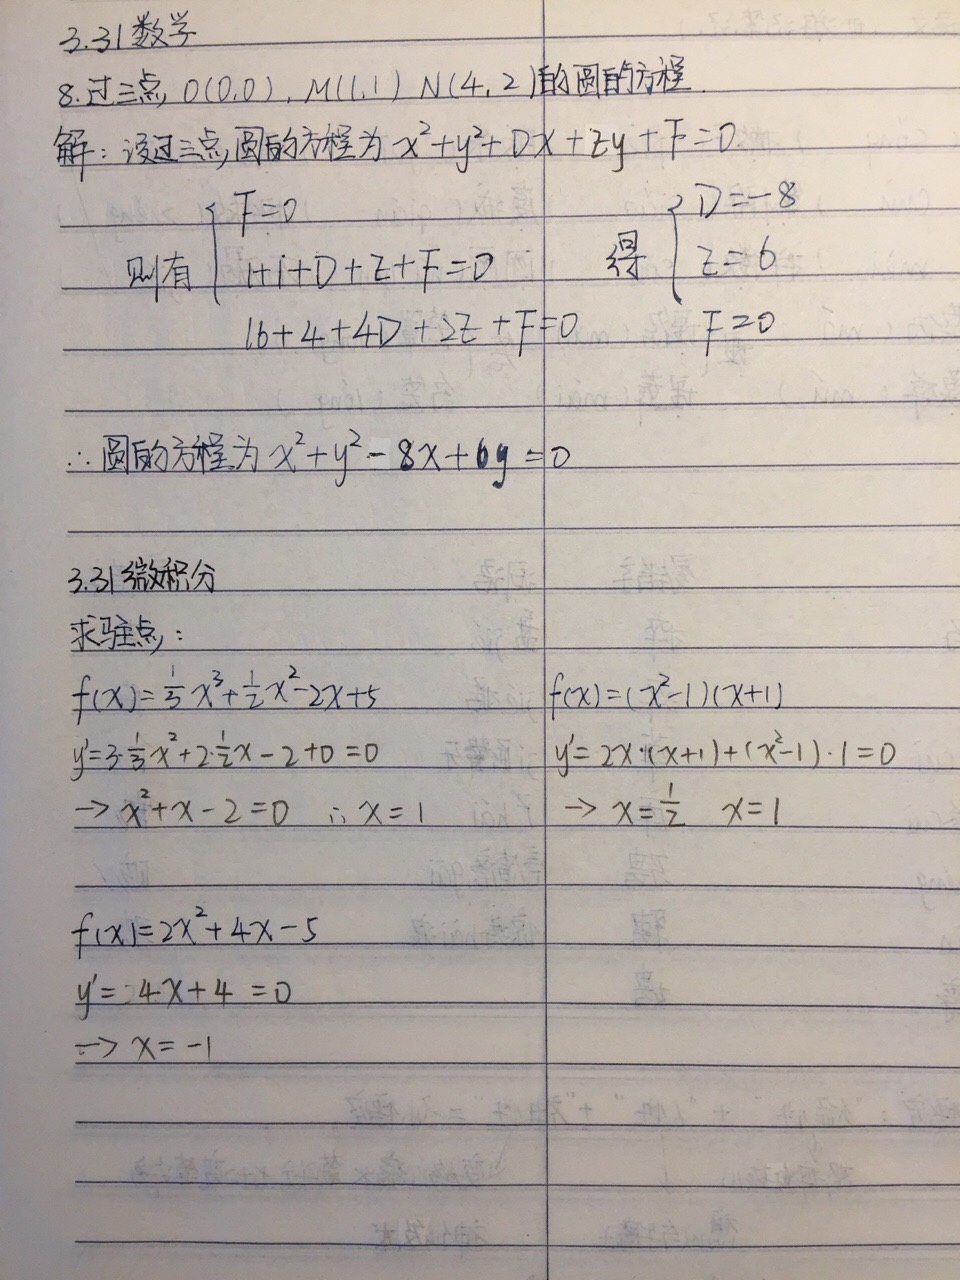 3.31数学
8.过三点O(0,0),M(1,1) N(4,2)的圆的方程.
解:设过三点圆的方程为x²+y²+Dx+Zy+F=0
则有 { F=0 得 { D=-8
1+1+D+Z+F=0 Z=6
16+4+4D+2Z+F=0 F=0
∴圆的方程为x²+y²-8x+6y=0
3.31微积分
求驻点:
f(x)=1/3x³+1/2x²-2x+5
y'=3·1/3x²+2·1/2x-2+0=0
→x²+x-2=0 ∴x=1
f(x)=(x²-1)(x+1)
y'=2x·(x+1)+(x²-1)·1=0
→ x=1/2 x=1
f(x)=2x²+4x-5
y'=4x+4=0
→ x=-1